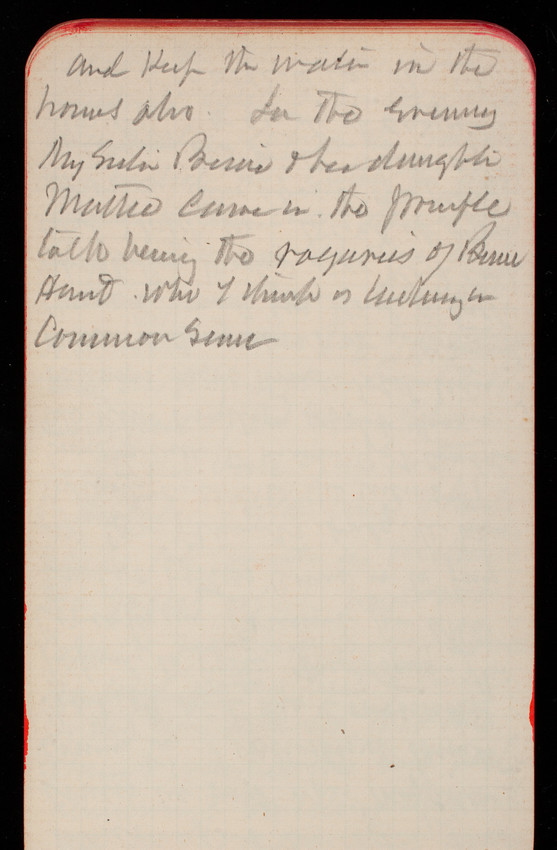 and keep the water in the
house also. In the evening
My Sister Bessie & her daughter
Mattie came in. the principle
talk being the vagaries of Bessie
Hunt. who I think is lacking in
Common Sense